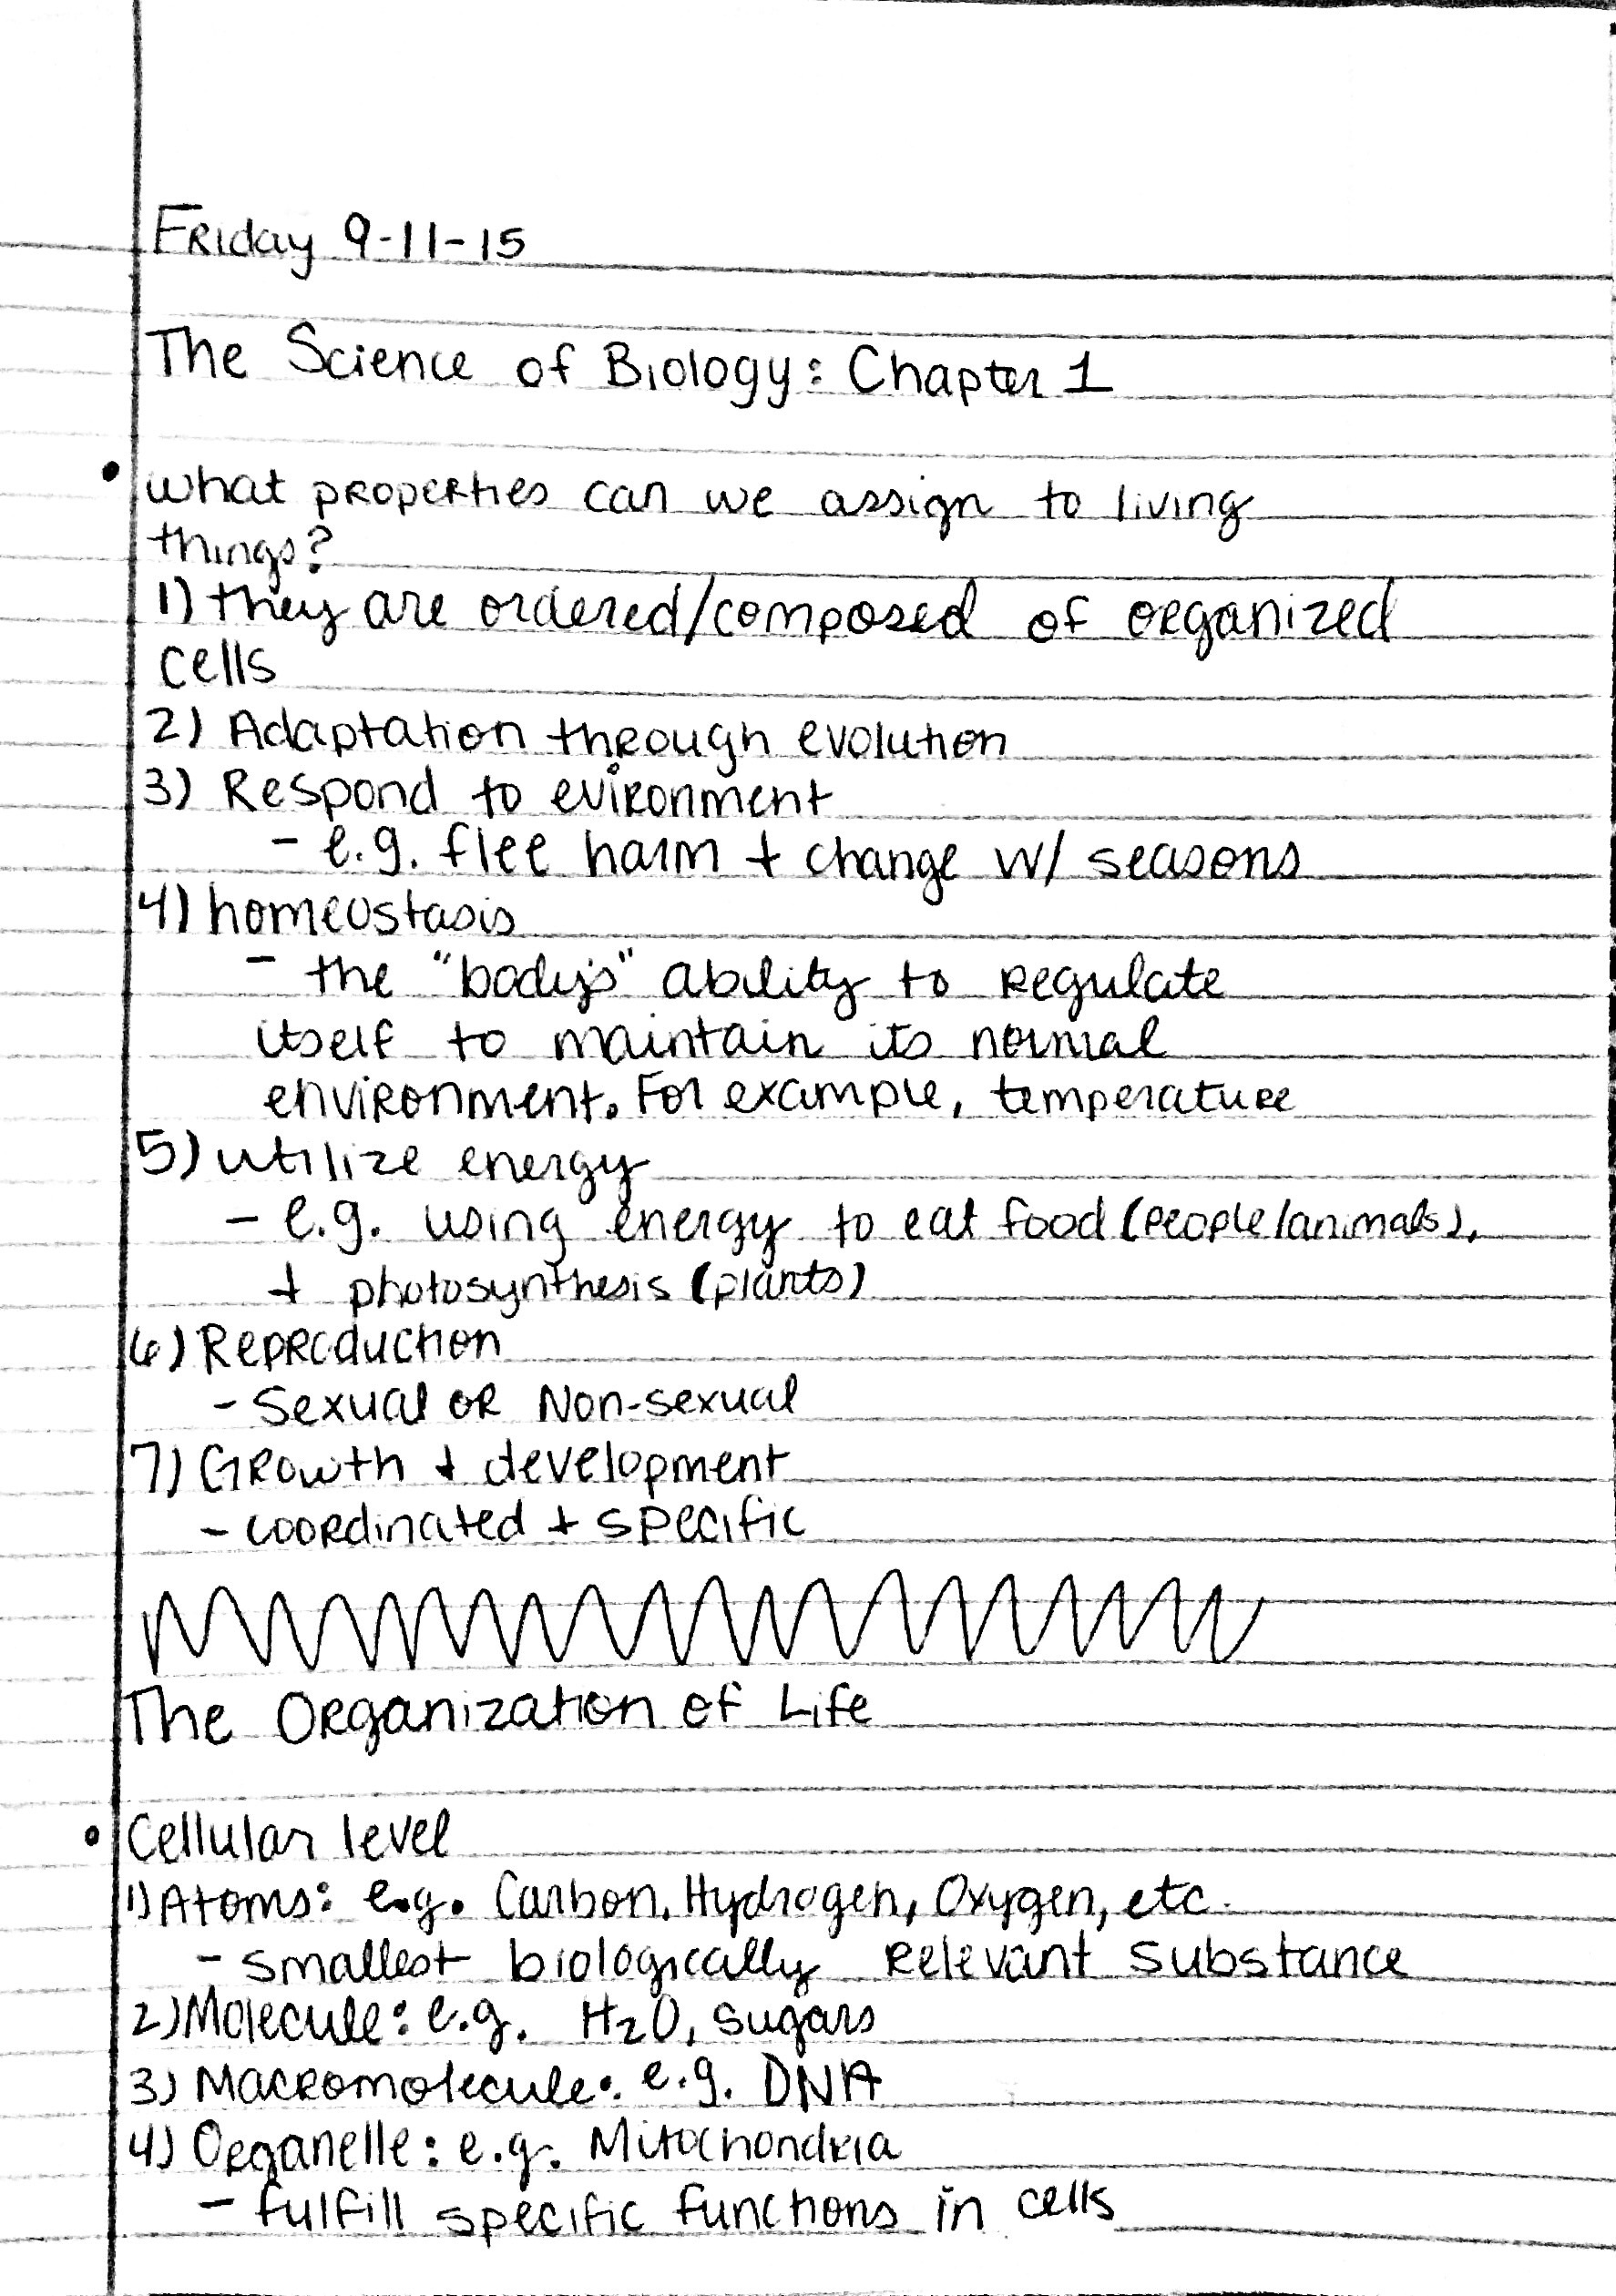 Friday 9-11-15
The Science of Biology: Chapter 1
• what properties can we assign to living
things?
1) they are ordered/composed of organized
cells
2) Adaptation through evolution
3) Respond to evironment
- e.g. flee harm + change w/ seasons
4) homeostasis
- the "body's" ability to regulate
itself to maintain its normal
environment. For example, temperature
5) utilize energy
- e.g. using energy to eat food (people/animals),
+ photosynthesis (plants)
6) Reproduction
- Sexual or Non-sexual
7) Growth + development
- coordinated + specific
The Organization of Life
• Cellular level
1) Atoms: e.g. Carbon, Hydrogen, Oxygen, etc.
- smallest biologically relevant substance
2) Molecule: e.g. H₂O, sugars
3) Macromolecule: e.g. DNA
4) Organelle: e.g. Mitochondria
- fulfill specific functions in cells